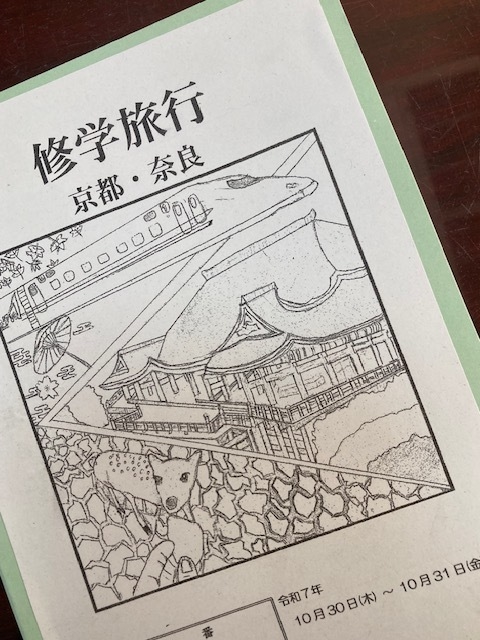 修学旅行
京都・奈良
令和7年
10月30日(木) ～ 10月31日(金
番